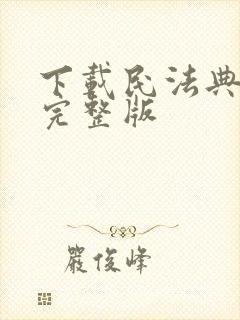 下載民法典
完整版
嚴俊峰